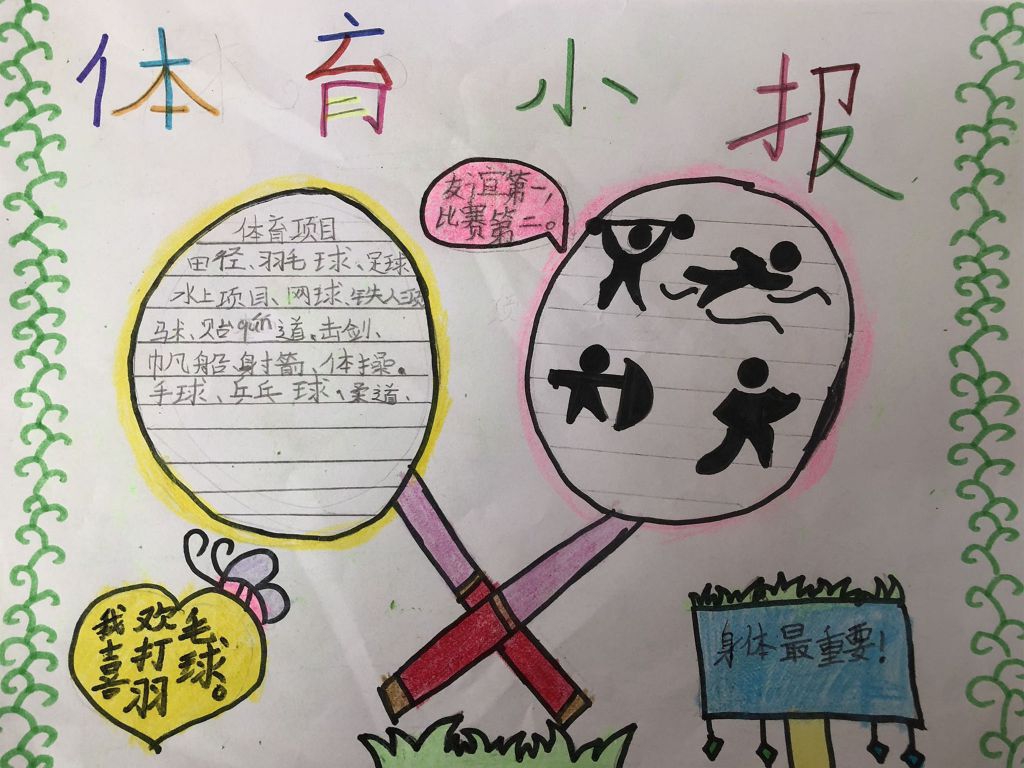 体育小报
友宜第一,
比赛第二。
体育项目
田径、羽毛球、足球
水上项目、网球、铁人三项
马术、跆qún道、击剑、
帆船、射箭、体操。
手球、乒乓球、柔道、
我喜
欢打羽
毛球。
身体最重要!